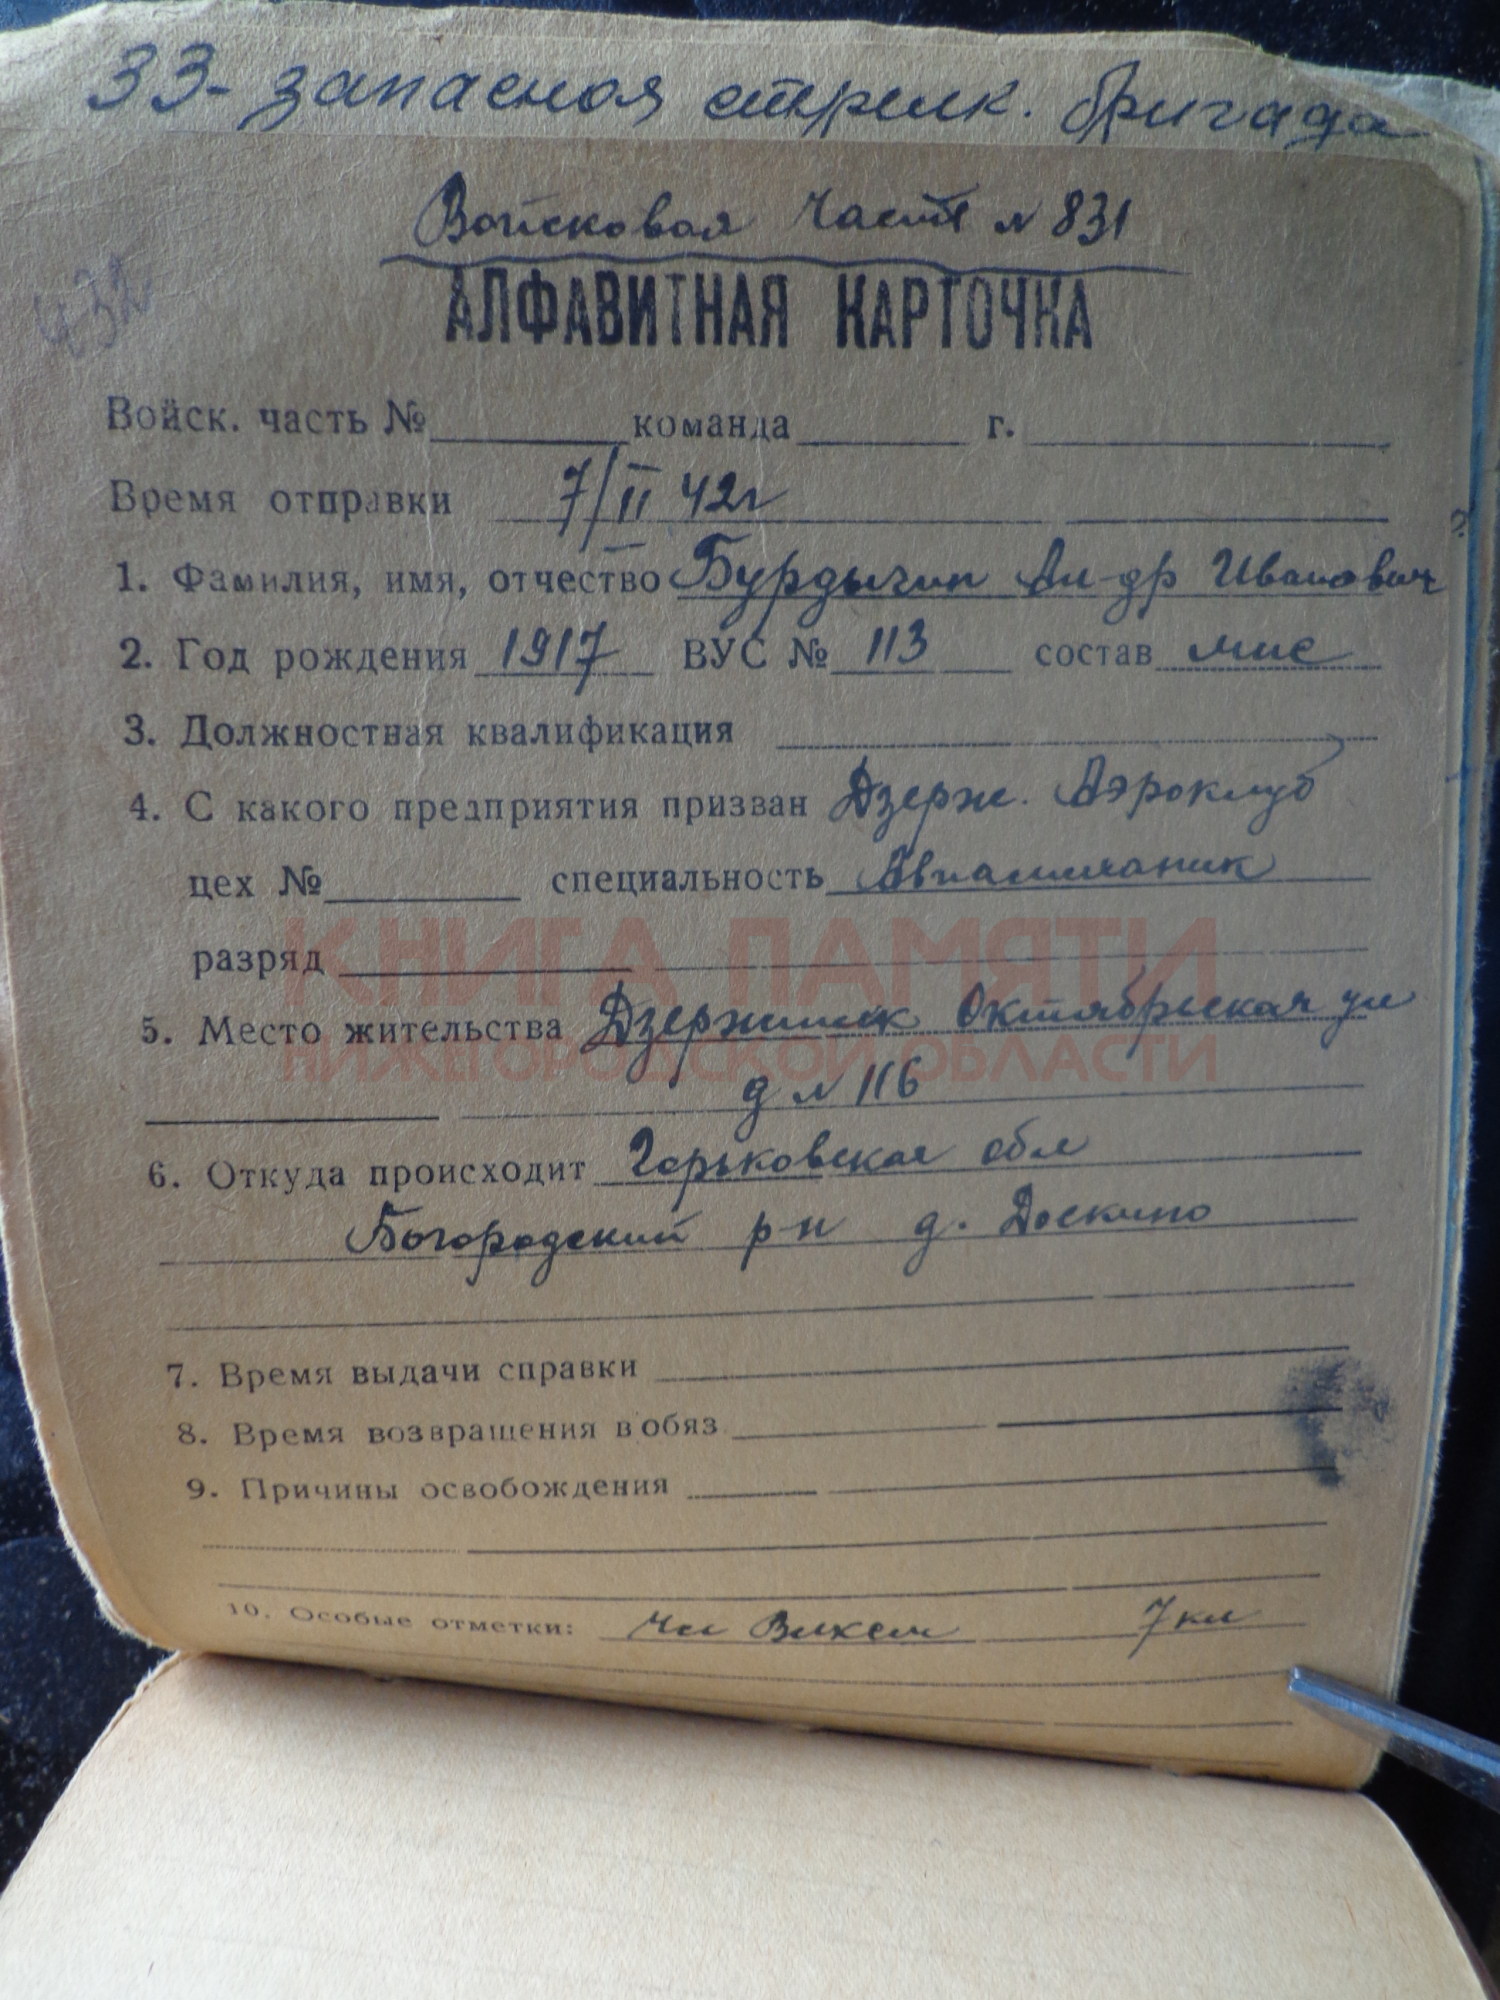 33- запасная стрелк. бригада
Войсковая часть № 831
432
АЛФАВИТНАЯ КАРТОЧКА
Войск. часть № команда г.
Время отправки 7/II 42г
1. Фамилия, имя, отчество Бурдычин Ан-др Иванович
2. Год рождения 1917 ВУС № 113 состав мнс
3. Должностная квалификация
4. С какого предприятия призван Дзерж. Аэроклуб
цех № специальность Авиамеханик
разряд
КНИГА ПАМЯТИ
5. Место жительства Дзержинск Октябрьская ул
НИЖЕГОРОДСКОЙ ОБЛАСТИ
д № 116
6. Откуда происходит Горьковская обл
Богородский р-н д. Доскино
7. Время выдачи справки
8. Время возвращения в обяз
9. Причины освобождения
10. Особые отметки: 7 кл